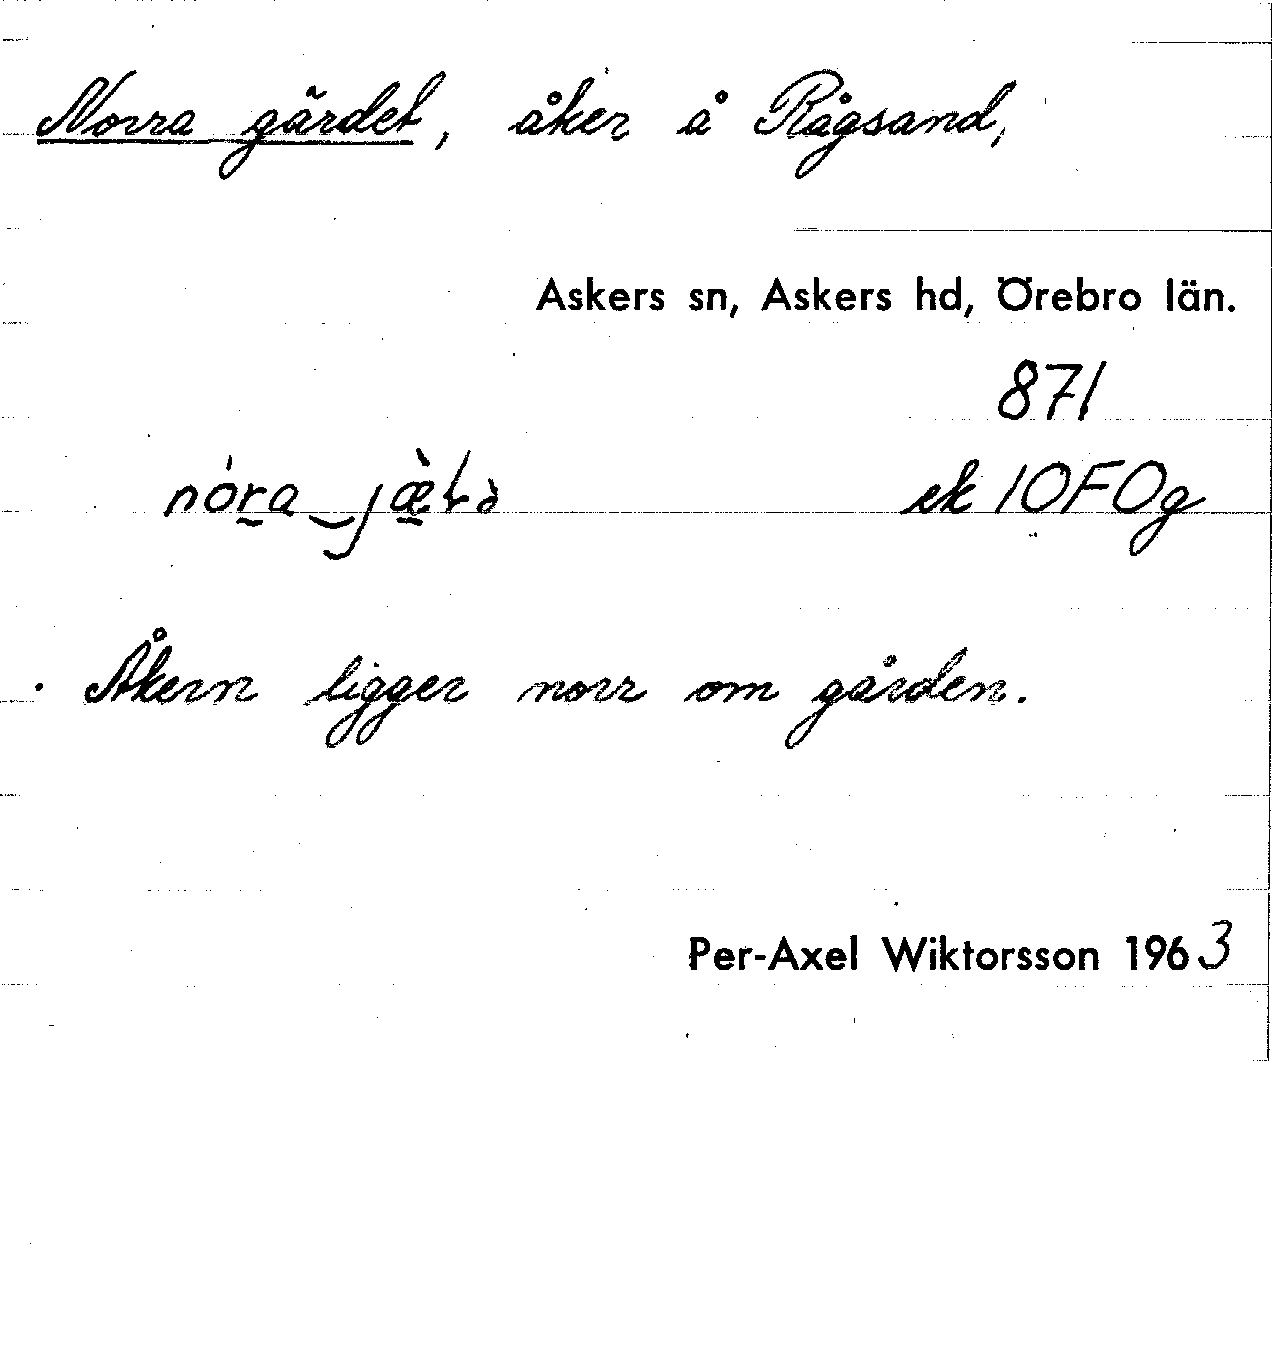 Norra gärdet, åker å Rågsand,
Askers sn, Askers hd, Örebro län.
871
ek 10F0g
Åkern ligger norr om gården.
Per-Axel Wiktorsson 1963